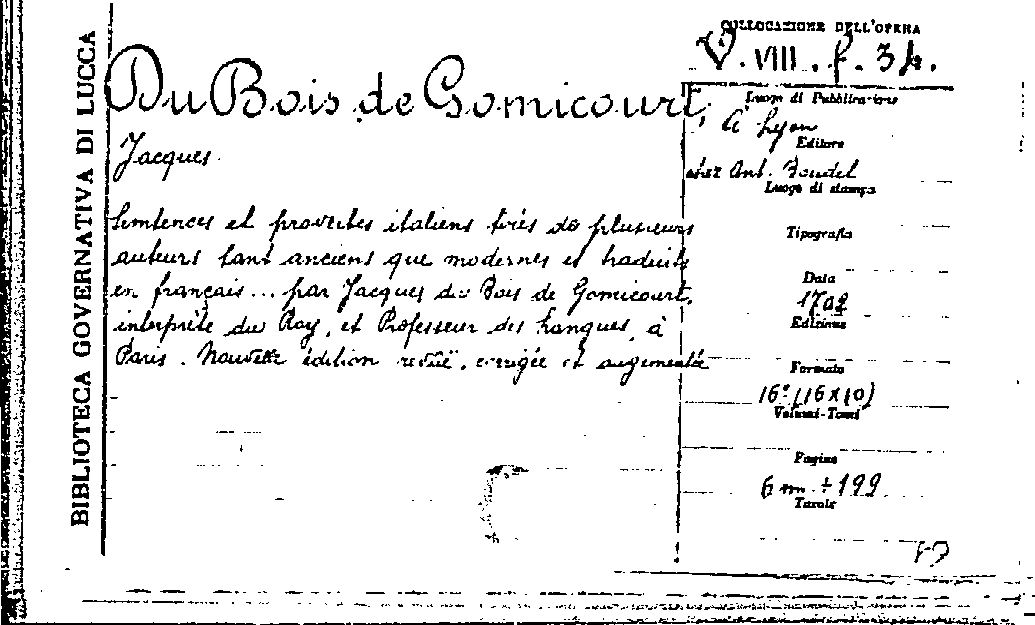 BIBLIOTECA GOVERNATIVA DI LUCCA
Du Bois de Gomicourt,
Jacques.
Sentences et proverbes italiens tirés de plusieurs
auteurs tant anciens que modernes et traduits
en français... par Jacques du Bois de Gomicourt,
interprète du Roy, et Professeur des Langues, à
Paris. Nouvelle édition revüe, corrigée et augmentée
COLLOCAZIONE DELL'OPERA
V. VIII. f. 34.
Luogo di Pubblicazione
à Lyon
Editore
chez Ant. Boudet
Luogo di stampa
Tipografia
Data
1702
Edizione
Formato
16° (16x10)
Volumi-Tomi
Pagine
6 nn + 199
Tavole